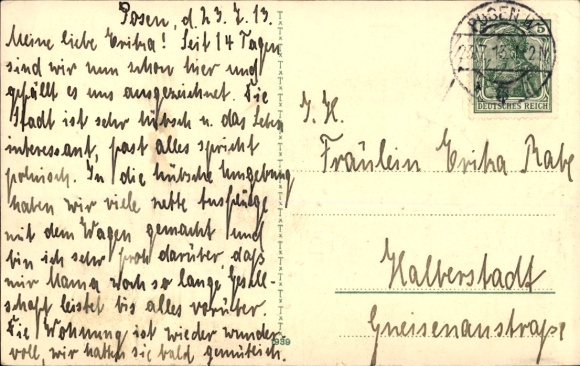 Posen, d. 23.7.13.
Meine liebe Erika! Seit 14 Tagen
sind wir nun schon hier und
gefällt es uns ausgezeichnet. Die
Stadt ist sehr hübsch u. das Leben
interessant, fast alles spricht
polnisch. In die hübsche Umgebung
haben wir viele nette Ausflüge
mit dem Wagen gemacht und
bin ich sehr froh darüber, daß
mir Mama noch so lange Gesell-
schaft leistet bis alles vorüber.
Die Wohnung ist wieder wunder
voll, wir hatten sie bald gemütlich.
939
POSEN
5
DEUTSCHES REICH
Fräulein Erika Rabe
Halberstadt
Gneisenaustraße